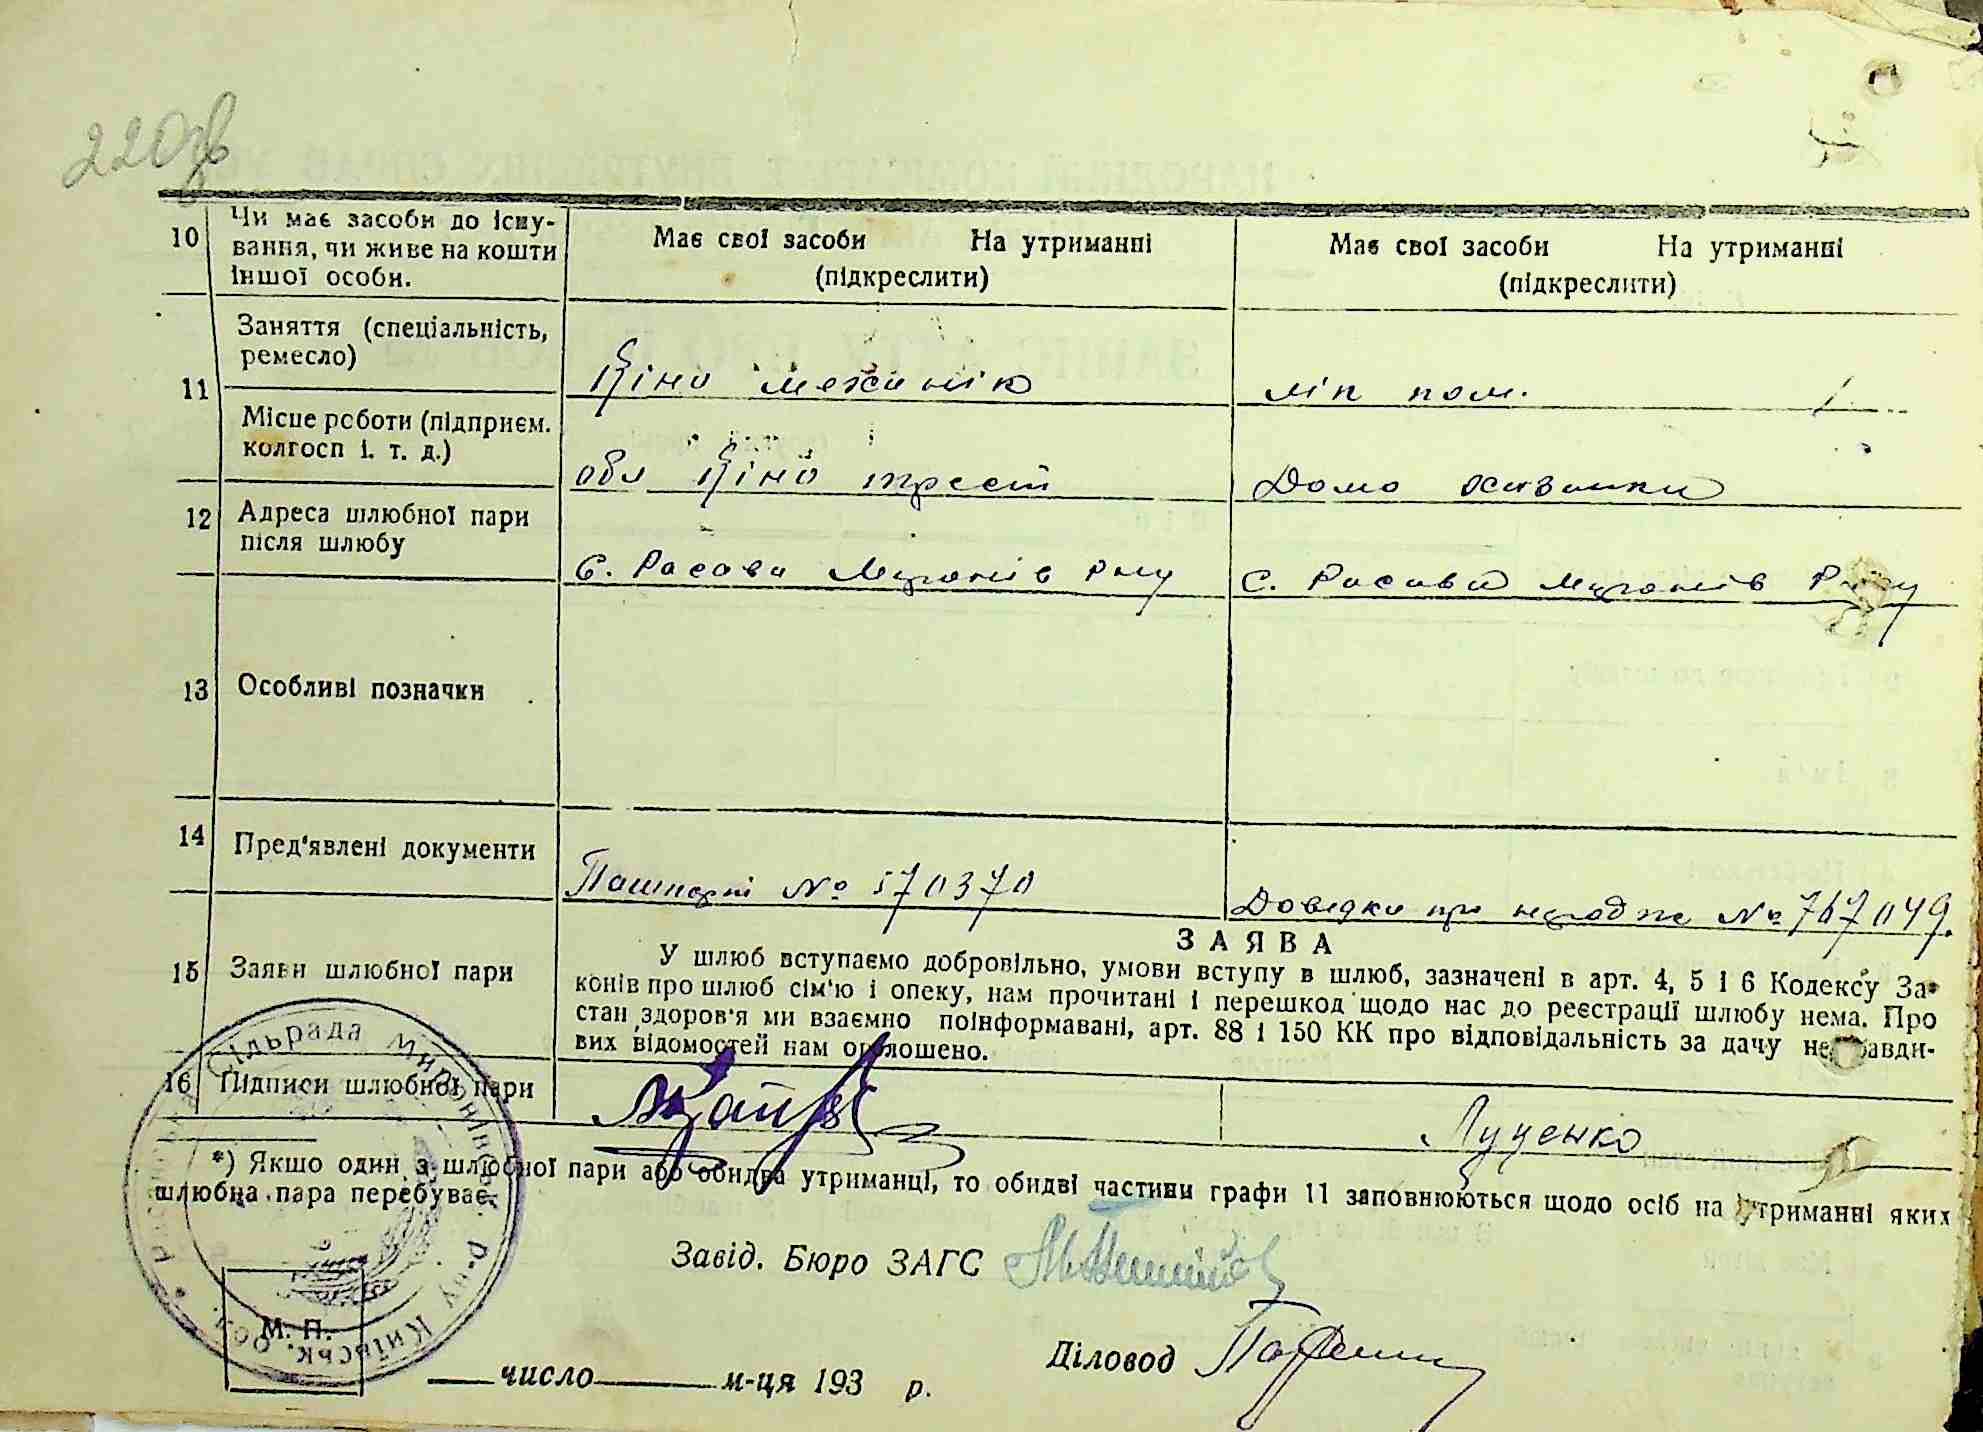 220зв
10 Чи має засоби до існу-
вання, чи живе на кошти
іншої особи.
Має свої засоби На утриманні
(підкреслити)
Має свої засоби На утриманні
(підкреслити)
11 Заняття (спеціальність,
ремесло)
Кіно механік
ліп пом.
Місце роботи (підприєм.
колгосп і. т. д.)
обл Кіно трест
Домо
12 Адреса шлюбної пари
після шлюбу
С. Расава Миронів р-ну
С. Расава Миронів р-ну
13 Особливі позначки
14 Пред'явлені документи
Пашпорт № 570370
Довідка про народж № 767049.
15 Заяви шлюбної пари
ЗАЯВА
У шлюб вступаємо добровільно, умови вступу в шлюб, зазначені в арт. 4, 5 і 6 Кодексу За-
конів про шлюб сім'ю і опеку, нам прочитані і перешкод щодо нас до реєстрації шлюбу нема. Про
стан здоров'я ми взаємно поінформавані, арт. 88 і 150 КК про відповідальність за дачу неправди-
вих відомостей нам оголошено.
16 Підписи шлюбної пари
Луценко
*) Якщо один з шлюбної пари або обидва утриманці, то обидві частини графи 11 заповнюються щодо осіб на утриманні яких
шлюбна пара перебуває.
Завід. Бюро ЗАГС
Діловод
М. П.
число м-ця 193 р.
Сільрада Миронівськ. р-ну Київськ. обл.